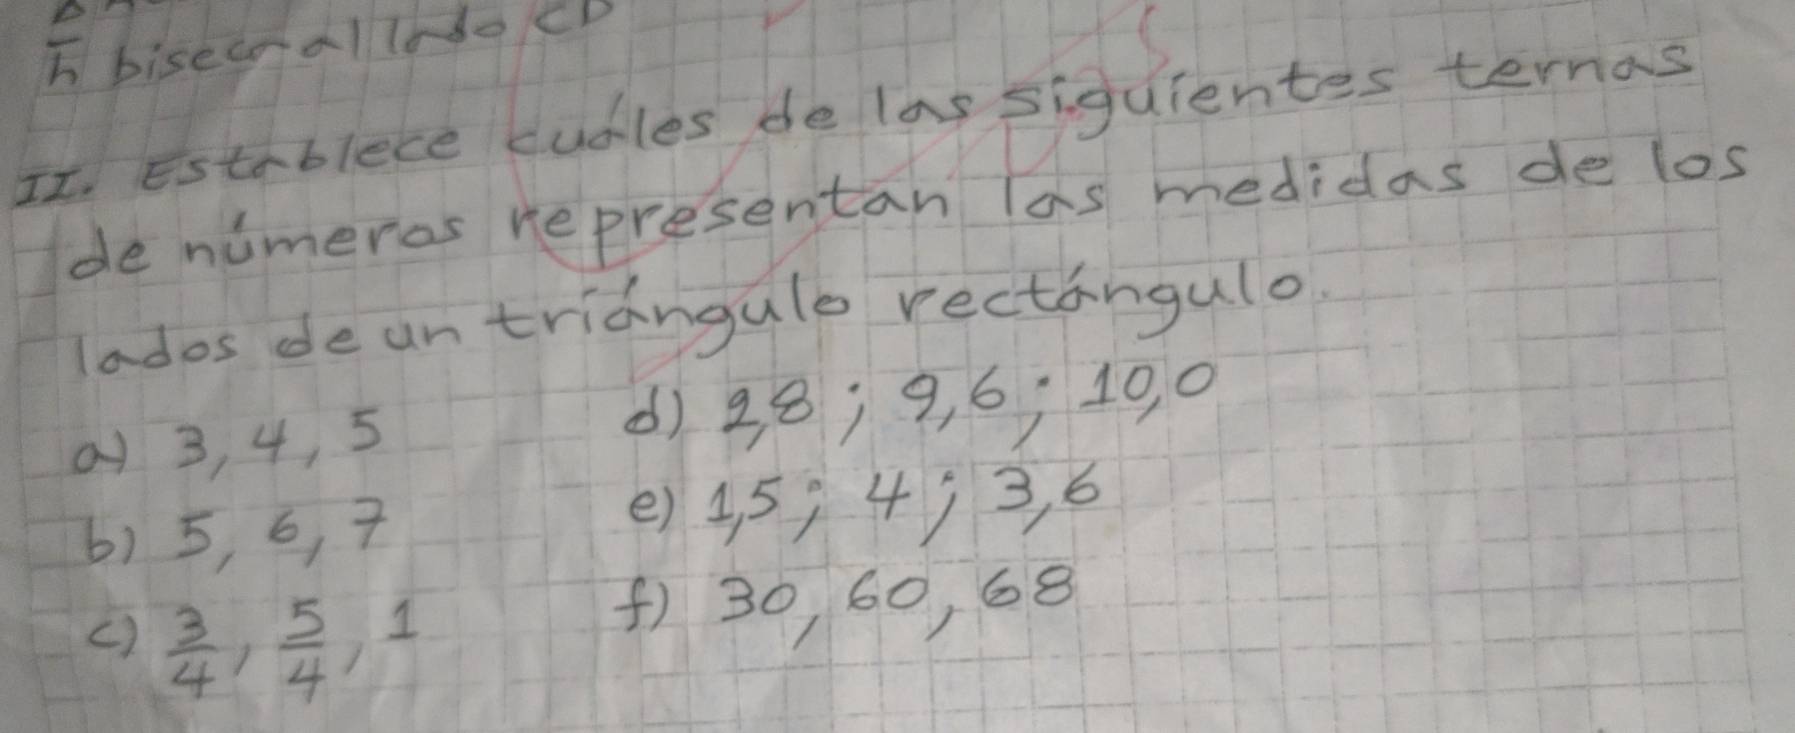 h biseca al lado CD
II. Establece cuáles de las siguientes ternas
de números representan las medidas de los
lados de un triángulo rectángulo.
a) 3, 4, 5
b) 5, 6, 7
c) 3/4, 5/4, 1
d) 2,8 ; 9,6 ; 10,0
e) 1,5 ; 4 ; 3,6
f) 30, 60, 68